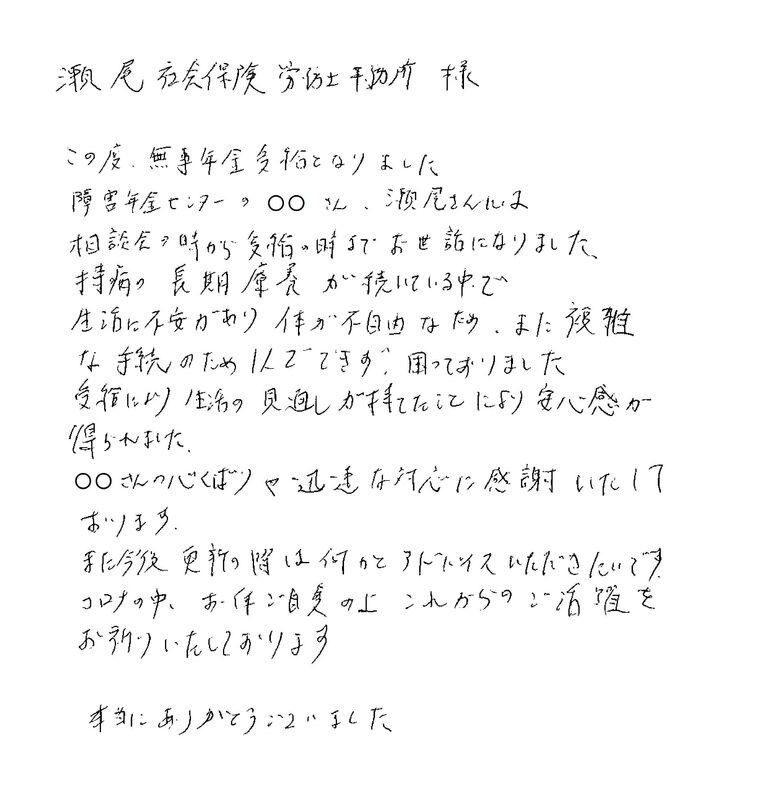 瀬尾社会保険労務士事務所 様
この度、無事年金受給となりました
障害年金センターの 〇〇 さん、瀬尾さんには
相談会の時から受給の時まで お世話になりました、
持病の 長期療養 が続いている中で
生活に不安があり 体が不自由なため、また 複雑
な 手続のため 1人でできず、困っておりました
受給により 生活の 見通しが持てたことにより 安心感が
得られました、
〇〇さんの心くばりや 迅速な対応に感謝 いたして
おります、
また今後 更新の際は何かとアドバイスいただきたいです
コロナの中、お体ご自愛の上 これからの ご活躍を
お祈りいたしております
本当にありがとうございました